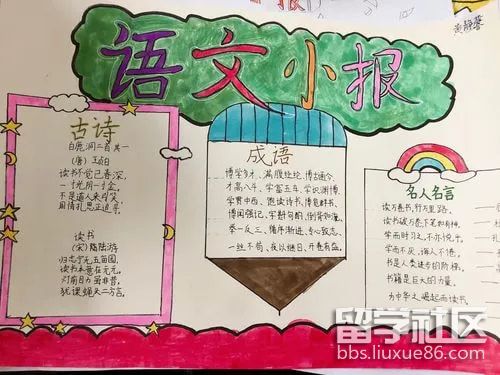 报
语文小报
古诗
白鹿洞二首 其一
(唐) 王贞白
读书不觉已春深,
一寸光阴一寸金。
不是道人来引笑,
周情孔思正追寻。
读书
(宋) 陆游
归志宁无五亩园,
读书本意在元元。
灯前目力虽非昔,
犹课蝇头二万言。
成语
博学多才、满腹经纶、博古通今、
才高八斗、学富五车、学识渊博、
学贯中西、饱读诗书、博览群书、
博闻强记、字斟句酌、倒背如流、
举一反三、循序渐进、专心致志、
一丝不苟、夜以继日、开卷有益。
名人名言
读万卷书,行万里路。
读书破万卷,下笔如有神。
学而时习之,不亦说乎。
学而不厌,诲人不倦。
书是人类进步的阶梯。
书籍是巨大的力量。
为中华之崛起而读书。
留学社区
bbs.liuxue86.com